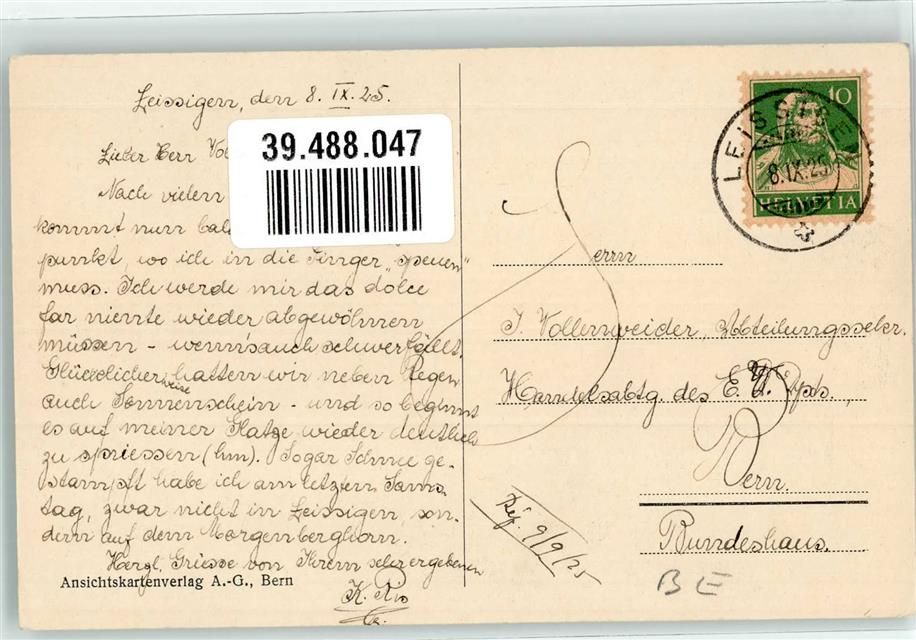 Leissigen, den 8. IX. 25.
Lieber Herr
39.488.047
Nach vielen
kommt nun
punkt, wo ich in die Finger „speuen"
muss. Ich werde mir das dolce
far niente wieder abgewöhnen
müssen - wenn's auch schwer fällt.
Glücklicherweise hatten wir neben Regen
auch Sonnenschein - und so beginnt
es auf meiner Glatze wieder deutlich
zu spriessen (hm). Sogar Schnee ge-
stampft habe ich am letzten Sams-
tag, zwar nicht in Leissigen, son-
dern auf dem Morgenberghorn.
Herzl. Grüsse von Ihrem sehr ergebenen
K.
Ansichtskartenverlag A.-G., Bern
10
HELVETIA
LEISSIGE
8.IX.25
Herrn
J. Vollenweider, Abteilungssekr.
Handelsabtg. des E.
Bern.
Bundeshaus.
9/9/25
BE